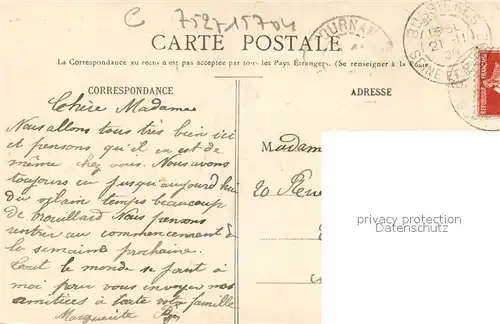 C 752715704
CARTE POSTALE
La Correspondance au recto n'est pas acceptée par tous les Pays Étrangers. (Se renseigner à la Poste)
CORRESPONDANCE
ADRESSE
Chère Madame
Nous allons tous très bien ici
et pensons qu'il en est de
même chez vous. Nous avons
toujours eu jusqu'aujourd'hui
du vilain temps beaucoup
de brouillard Nous pensons
rentrer au commencement de
la semaine prochaine.
Tout le monde se joint à
moi pour vous envoyer nos
amitiés à toute votre famille
Marguerite
Madam
20
protected by copyright
REPUBLIQUE FRANÇAISE
TOURNAN
SEINE ET
21